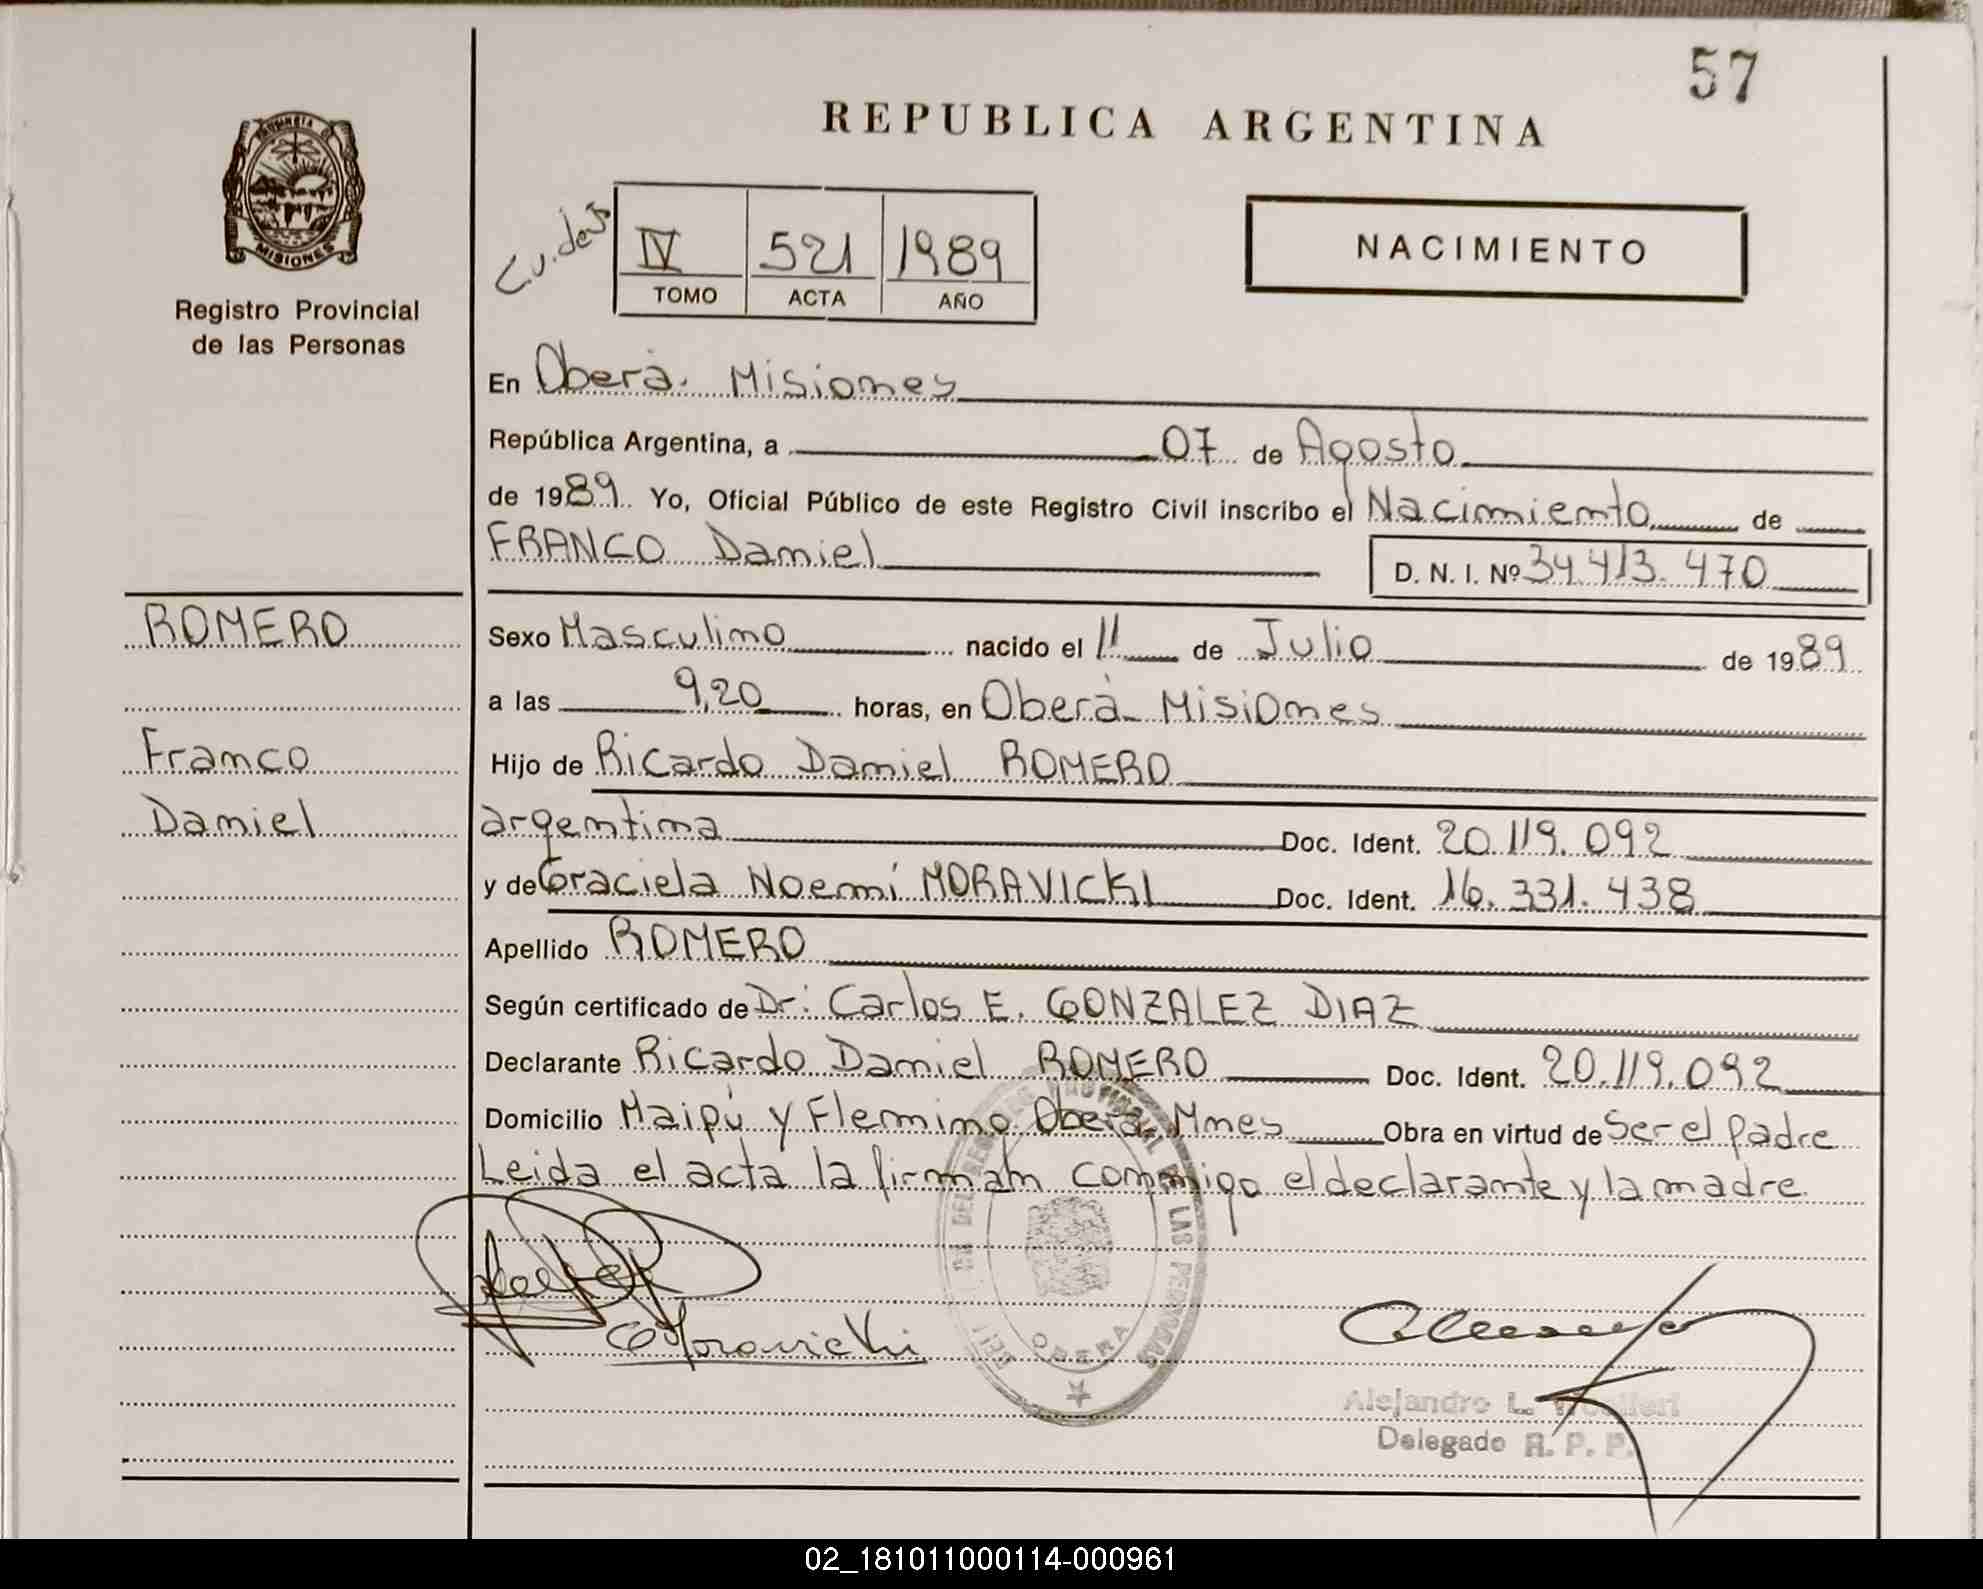 57
REPUBLICA ARGENTINA
PROVINCIA DE
MISIONES
Registro Provincial
de las Personas
IV 521 1989
TOMO ACTA AÑO
NACIMIENTO
En Oberá. Misiones
República Argentina, a 07 de Agosto
de 1989. Yo, Oficial Público de este Registro Civil inscribo el Nacimiento de
FRANCO Daniel D. N. I. Nº 34.413.470
ROMERO
Sexo Masculino nacido el 11 de Julio de 1989
a las 9,20 horas, en Oberá Misiones
Franco
Hijo de Ricardo Daniel ROMERO
Daniel
argentina Doc. Ident. 20.119.092
y de Graciela Noemí MORAVICKI Doc. Ident. 16.331.438
Apellido ROMERO
Según certificado de Dr: Carlos E. GONZALEZ DIAZ
Declarante Ricardo Daniel ROMERO Doc. Ident. 20.119.092
Domicilio Maipú y Fleming Oberá Mnes Obra en virtud de Ser el padre
Leida el acta la firman conmigo el declarante y la madre
DE LAS PERSONAS
OBERA
G Moravicki
Alejandro L.
Delegado R. P. P.
02_181011000114-000961